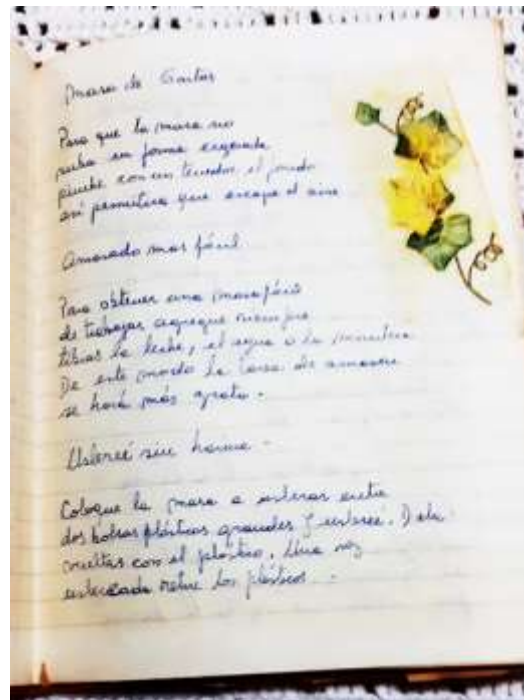 Masa de Tartas
Para que la masa no
suba en forma exagerada
pinche con un tenedor el fondo
así permitira que escape el aire
Amasado mas fácil
Para obtener una masa fácil
de trabajar agregue siempre
tibias la leche, el agua o la manteca
De este modo la tarea de amasar
se hará más grata.
Uslereé sin harina -
Coloque la masa a uslerear entre
dos bolsas plásticas grandes y uslereé. Dele
vueltas con el plástico. Una vez
uslereada retire los plásticos -